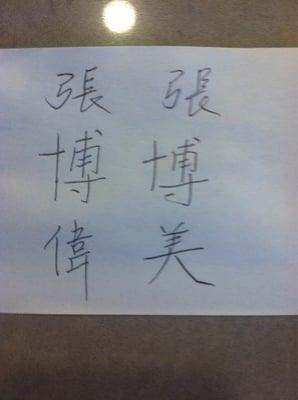 張博美
張博偉